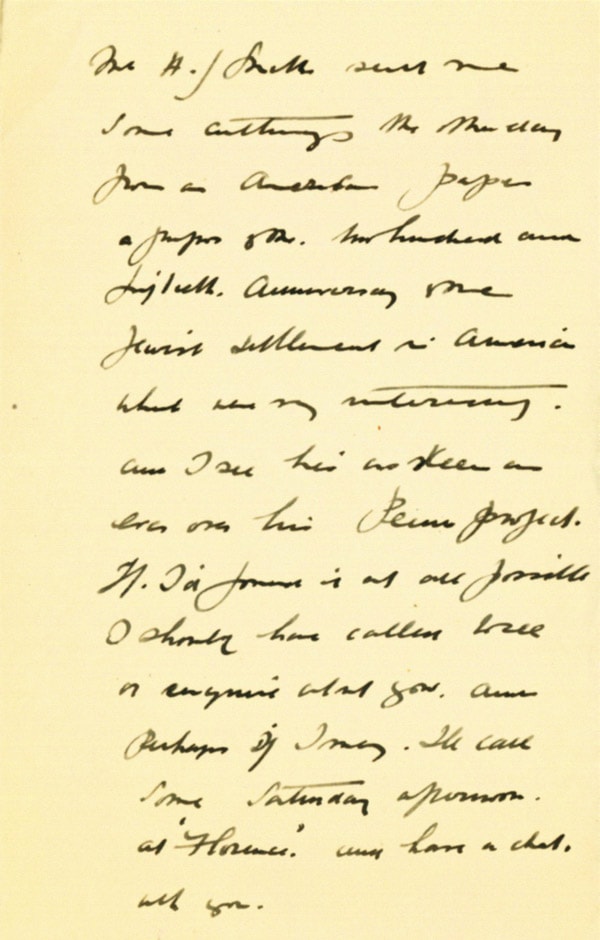 Mr H. J Smith sent me
some cuttings the other day
from an American paper
apropos of the. two hundred and
fiftieth. Anniversary of the
Jewish settlement in America
what was very interesting.
and I see he's as keen as
ever over his Penn project.
If. I'd found it at all possible
I should have called to see
or enquire about you. and
Perhaps if I may. I'll call
some Saturday afternoon.
at "Florence". and have a chat.
with you.